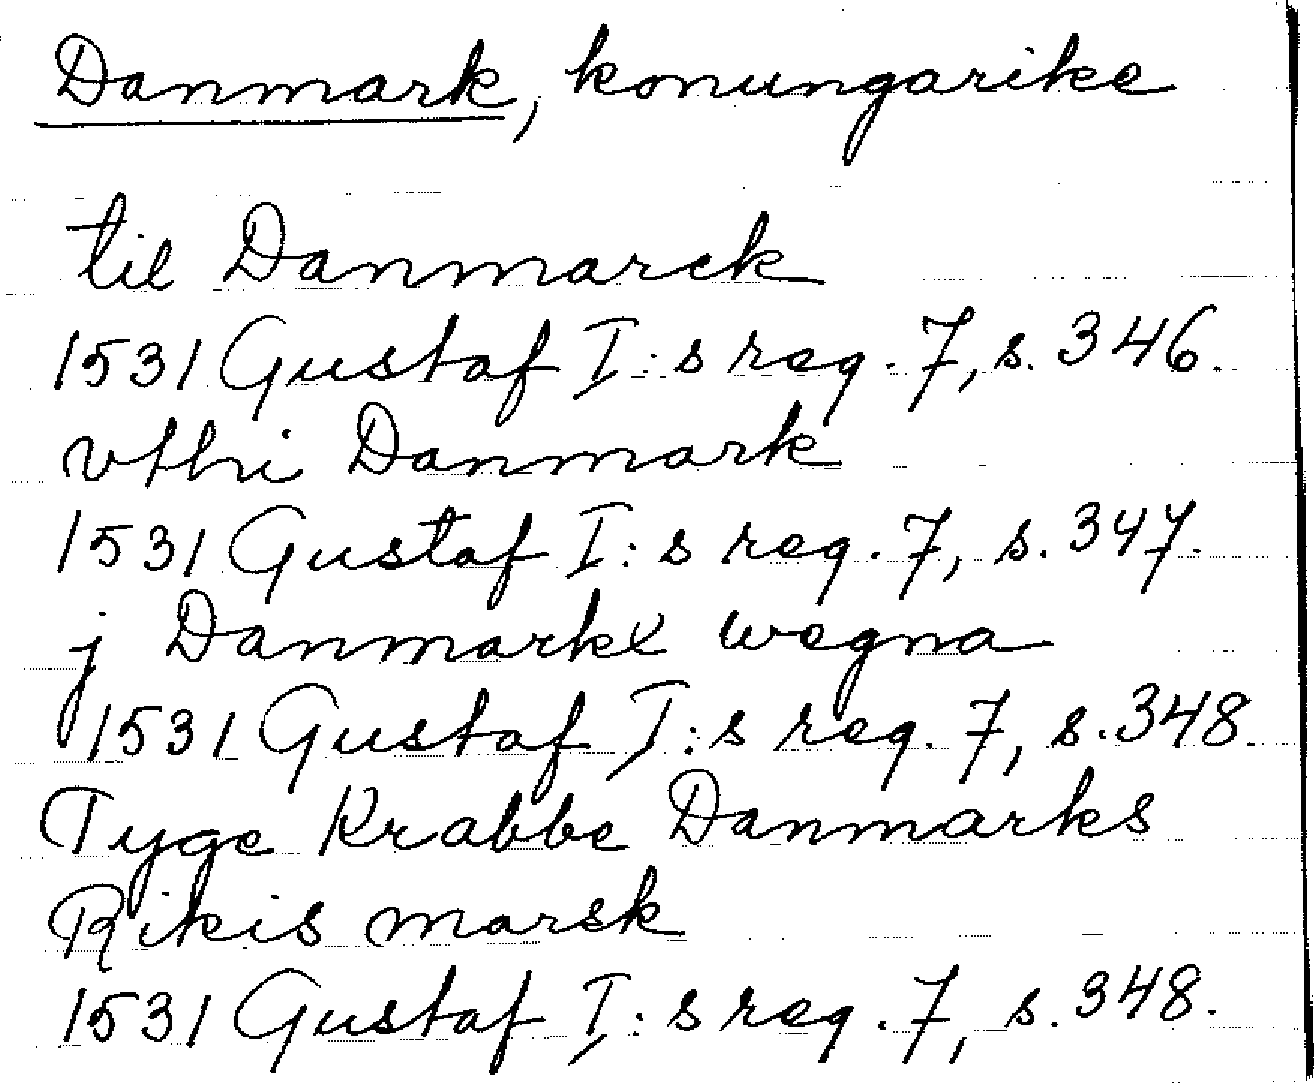 Danmark, konungarike
til Danmarck
1531 Gustaf I:s reg. 7, s. 346.
vthi Danmark
1531 Gustaf I:s reg. 7, s. 347.
j Danmarkx wegna
1531 Gustaf I:s reg. 7, s. 348.
Tyge Krabbe Danmarks
Rikis marsk
1531 Gustaf I:s reg. 7, s. 348.